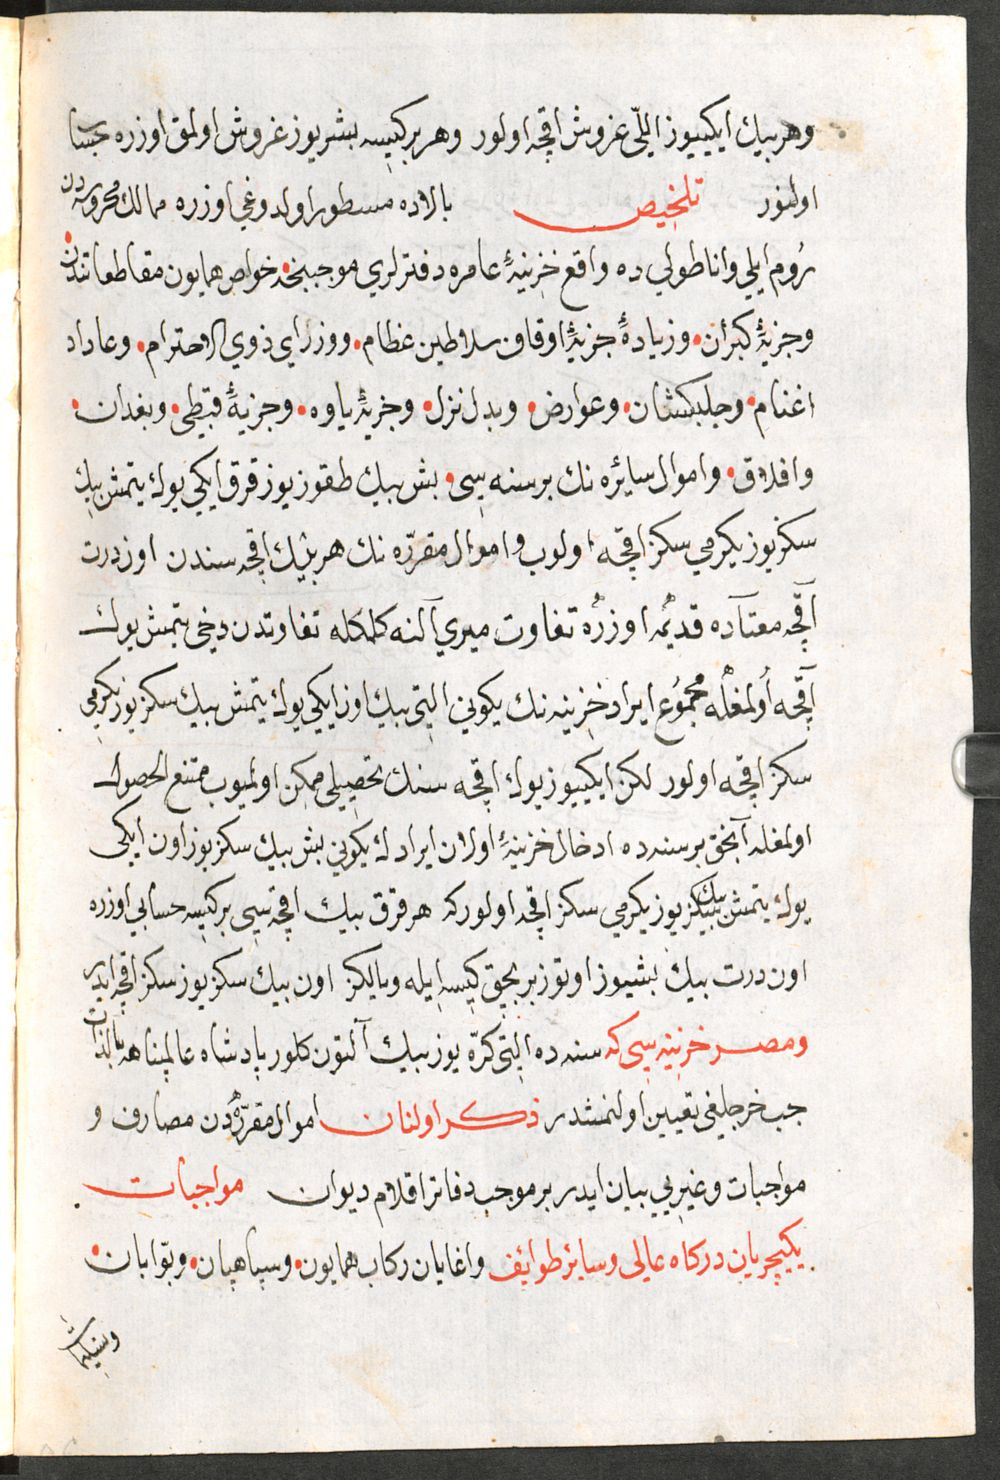 وهر بيك ايكييوز اللّى غروش اقچه اولور وهر بر كيسه بشريوز غروش اولمق اوزره حساب
اولنور تلخيص بالاده مسطور اولدوغي اوزره ممالك محروسه دن
رُوم ايلي واناطولي ده واقع خزينۀ عامره دفترلري موجبنجه خواص همايون مقاطعاتندن
وجزيۀ كبران وزيادۀ جزيۀ اوقاف سلاطين عظام ووزراي ذوي الاحترام وعاداد
اغنام وجلبكشان وعوارض وبدل نزل وجزيۀ ياوه وجزيۀ قبطى وبغدان
وافلاق واموال سايره نك بر سنه سى بش بيك طقوز يوز قرق ايكي يوك يتمش بيك
سكز يوز يكرمي سكز اقچه اولوب واموال مقرّره نك هر بيك اقچه سندن اوز درت
آقچه معتاده قديمه اوزره تفاوت ميري آلنه كلمكله تفاوتدن دخي يتمش يوك
آقچه اُولمغله مجموُع ايراد خزينه نك يكوني التى بيك اون ايكي يوك يتمش بيك سكز يوز يكرمي
سكز اقچه اولور لكن ايكييوز يوك اقچه سنك تحصيلى ممكن اولميوب ممتنع الحصول
اولمغله آنجق بر سنه ده ادخال خزينۀ اولان ايرادك يكوني بش بيك سكز يوز اون ايكى
يوك يتمش بيك سكز يوز يكرمي سكز اقچه اولور كه هر قرق بيك اقچه سى بر كيسه حسابي اوزره
اون درت بيك بشيوز اوتوز بر بچق كيسه ايله ويالكز اون بيك سكز يوز سكز اقچه ايدر
ومصر خزينه سى كه سنه ده التى كرّه يوز بيك آلتون كلور پادشاه عالمپناهه بالذات
جب خرجلغى تعيين اولنمشدر ذكر اولنان اموال مقرّره دن مصارف و
مواجبات وغيريي بيان ايدر بر موجب دفاتر اقلام ديوان مواجبات
يكيچريان دركاه عالى وساير طوائف واغايان ركاب همايون وسپاهيان وبوّابان